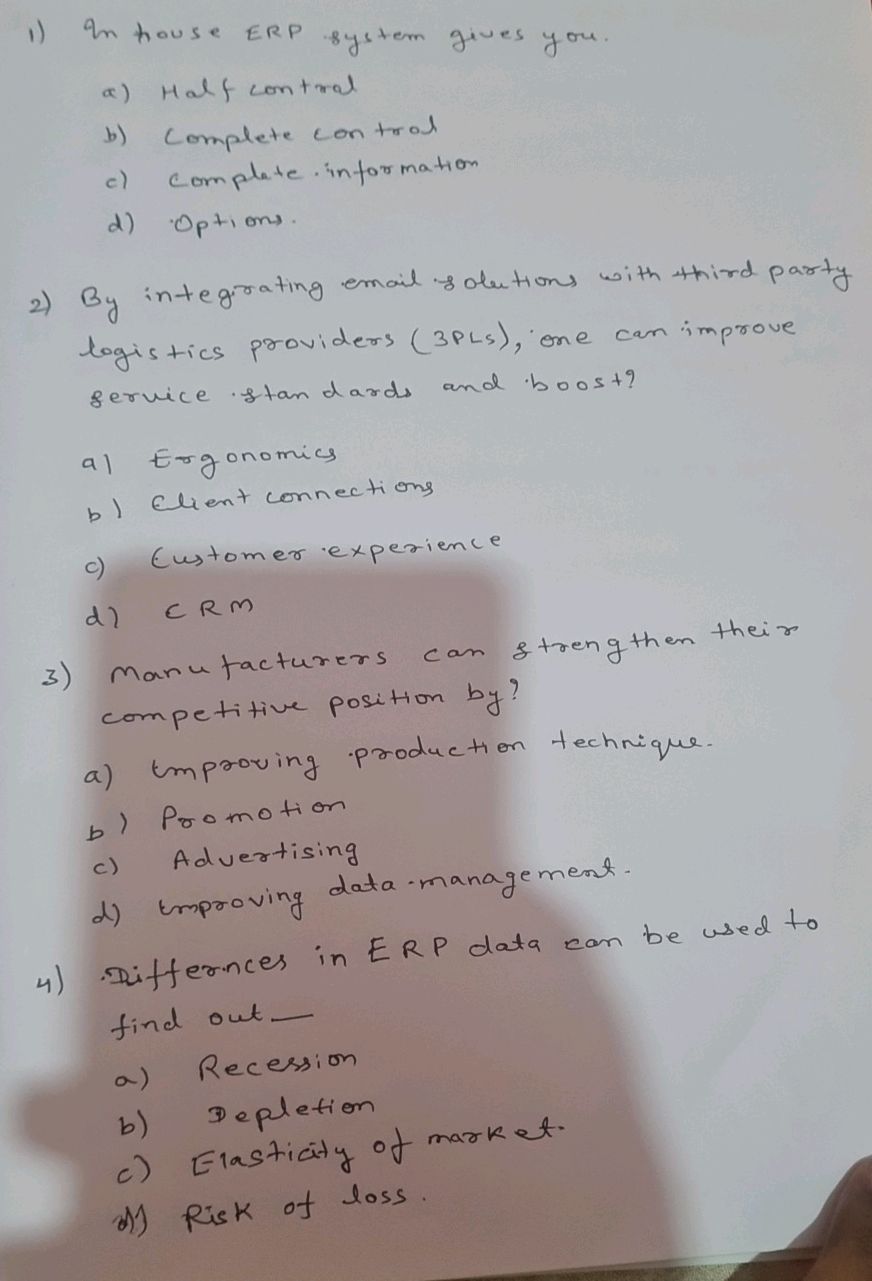 1) In house ERP system gives you.
a) Half control
b) Complete control
c) complete information
d) Options.
2) By integrating email solutions with third party
logistics providers (3PLs), one can improve
service standards and boost?
a) Ergonomics
b) Client connections
c) Customer experience
d) CRM
3) Manufacturers can strengthen their
competitive position by?
a) Improving production technique.
b) Promotion
c) Advertising
d) Improving data management.
4) Differnces in ERP data can be used to
find out —
a) Recession
b) Depletion
c) Elasticity of market.
d) Risk of loss.